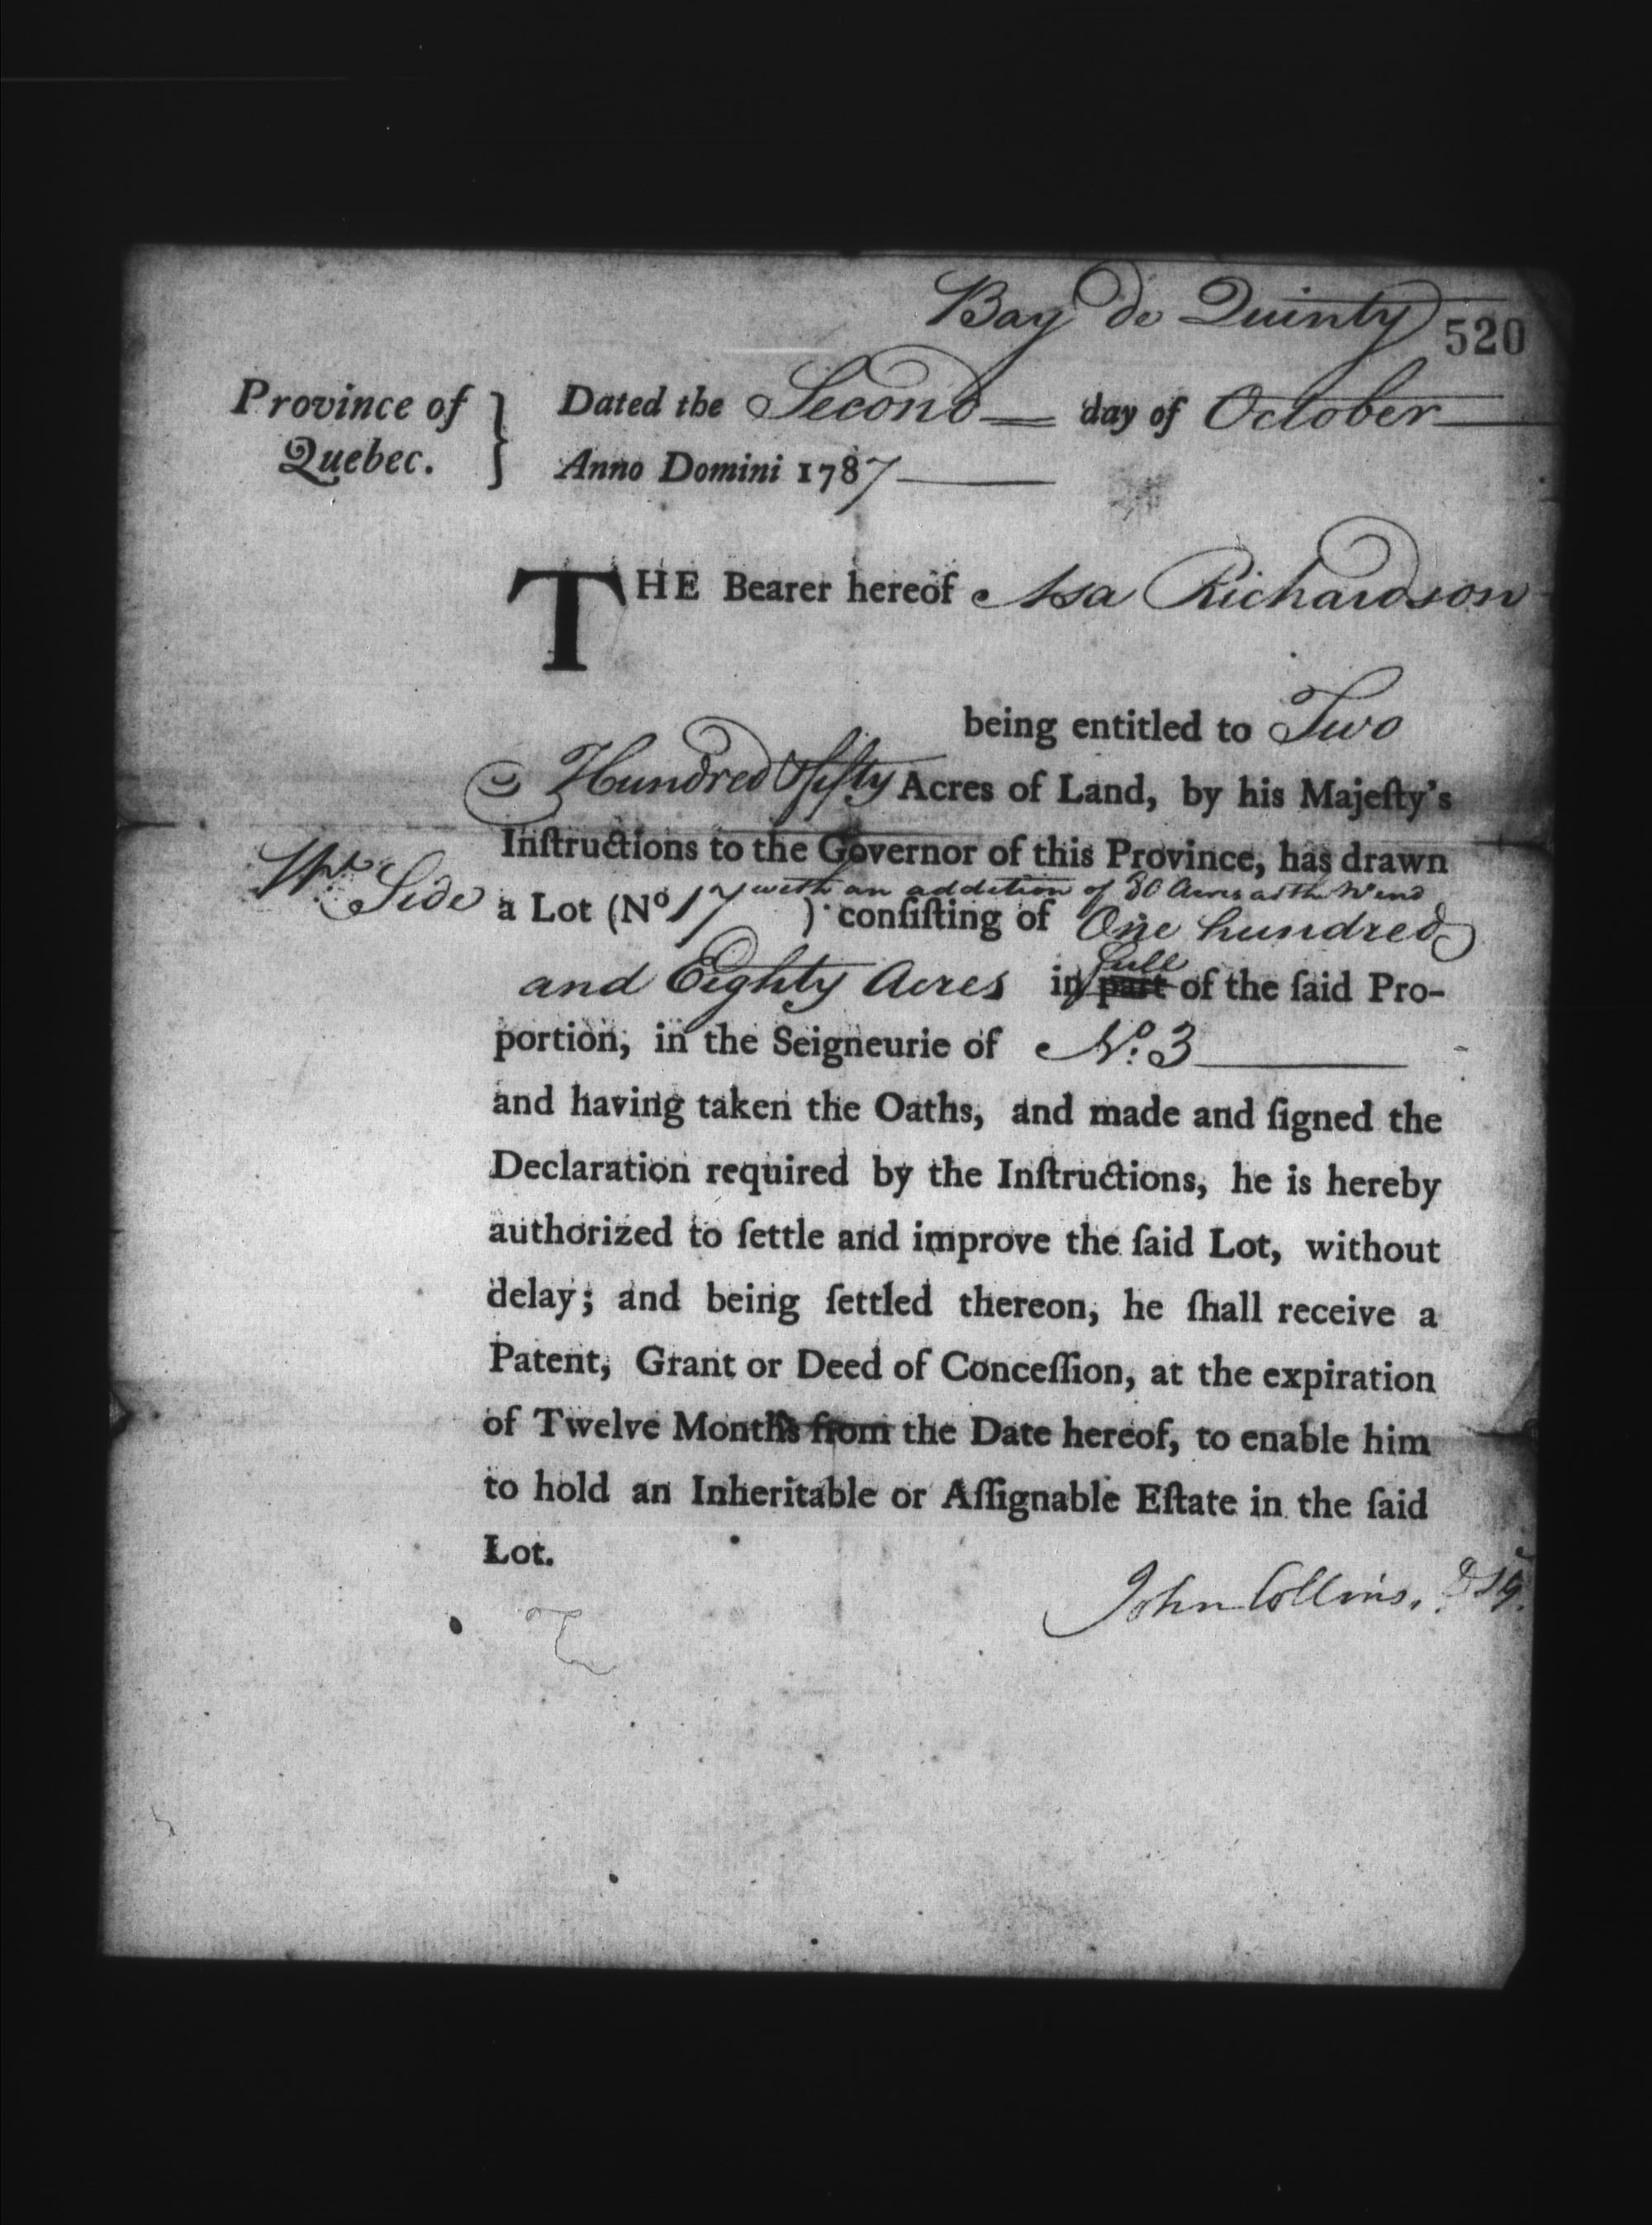 Bay de Quinty
520
Province of Quebec.
Dated the Second day of October
Anno Domini 1787
THE Bearer hereof Asa Richardson
being entitled to Two
Hundred & fifty Acres of Land, by his Majeſty's
Inſtructions to the Governor of this Province, has drawn
Side
with an addition of 80 Acres at the W end
a Lot (No 17 ) conſiſting of One hundred
full
and Eighty Acres in part of the ſaid Pro-
portion, in the Seigneurie of No. 3
and having taken the Oaths, and made and ſigned the
Declaration required by the Inſtructions, he is hereby
authorized to ſettle and improve the ſaid Lot, without
delay; and being ſettled thereon, he ſhall receive a
Patent, Grant or Deed of Conceſſion, at the expiration
of Twelve Months from the Date hereof, to enable him
to hold an Inheritable or Aſſignable Eſtate in the ſaid
Lot.
John Collins,